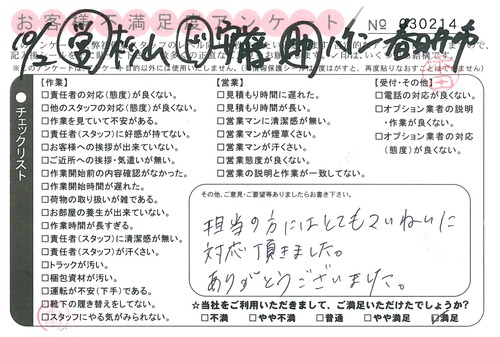 お客様不満足度アンケート
No 030214
チェックリスト
【作業】
□責任者の対応(態度)が良くない。
□他のスタッフの対応(態度)が良くない。
□作業を見ていて不安がある。
□責任者(スタッフ)に好感が持てない。
□お客様への挨拶が出来ていない。
□ご近所への挨拶・気遣いが無い。
□作業開始前の内容確認がなかった。
□作業開始時間が遅れた。
□荷物の取り扱いが雑である。
□お部屋の養生が出来ていない。
□作業時間が長すぎる。
□責任者(スタッフ)に清潔感が無い。
□責任者(スタッフ)が汗くさい。
□トラックが汚い。
□梱包資材が汚い。
□運転が不安(下手)である。
□靴下の履き替えをしてない。
□スタッフにやる気がみられない。
【営業】
□見積もり時間に遅れた。
□見積もり時間が長い。
□営業マンに清潔感が無い。
□営業マンが煙草くさい。
□営業マンが汗くさい。
□営業態度が良くない。
□営業の説明と作業が一致してない。
【受付・その他】
□電話の対応が良くない。
□オプション業者の説明
・作業が良くない。
□オプション業者の対応
(態度)が良くない。
その他、ご意見・ご要望等ありましたらお書き下さい。
担当の方にはとてもていねいに
対応頂きました。
ありがとうございました。
☆当社をご利用いただきまして、ご満足いただけたでしょうか?
□不満 □やや不満 □普通 □やや満足 ☑満足